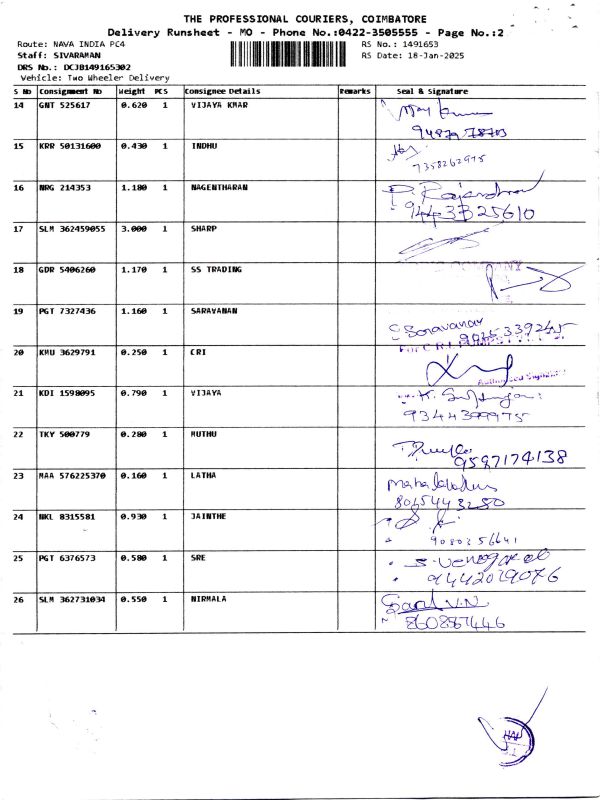 THE PROFESSIONAL COURIERS, COIMBATORE
Delivery Runsheet - MO - Phone No.:0422-3505555 - Page No.:2
Route: NAVA INDIA PC4 RS No.: 1491653
Staff: SIVARAMAN RS Date: 18-Jan-2025
DRS No.: DCJB149165302
Vehicle: Two Wheeler Delivery
S No Consignment No Weight PCS Consignee Details Remarks Seal & Signature
14 GNT 525617 0.620 1 VIJAYA KMAR
15 KRR 50131600 0.430 1 INDHU
7358262975
16 NRG 214353 1.180 1 NAGENTHARAN P. Rajendran
9443325610
17 SLM 362459055 3.000 1 SHARP
18 GDR 5406260 1.170 1 SS TRADING
19 PGT 7327436 1.160 1 SARAVANAN Saravanan
9025339245
20 KMU 3629791 0.250 1 CRI
Authorised Signatory
21 KDI 1598095 0.790 1 VIJAYA
9344399975
22 TKY 500779 0.280 1 MUTHU
9597174138
23 MAA 576225370 0.160 1 LATHA
8065443280
24 NKL 8315581 0.930 1 JAINTHE
25 PGT 6376573 0.580 1 SRE
9442029076
26 SLM 362731034 0.550 1 NIRMALA